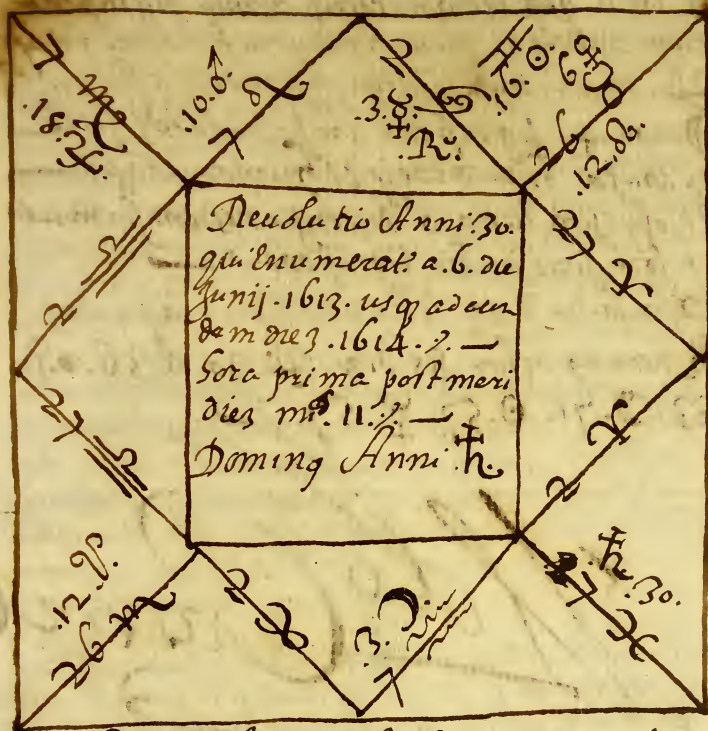 7 ♍
.18.♃.
.10.♂
7 ♌
2 ♋
.3.☿
.R.
♊
.16.☉
6 ♀
26 ♉
.12.☊.
2 ♎
27 ♈
Reuolutio Anni.30.
qui Enumerat. a.6. die
Junij .1613. usq adeun
dem diez .1614.
hora prima post meri
diez 11.
Dominq Anni ♄
27 ♎
2 ♈
.12.☋.
26 ♏
2
3.☽
7 ♒
♄.30.
7 ♓